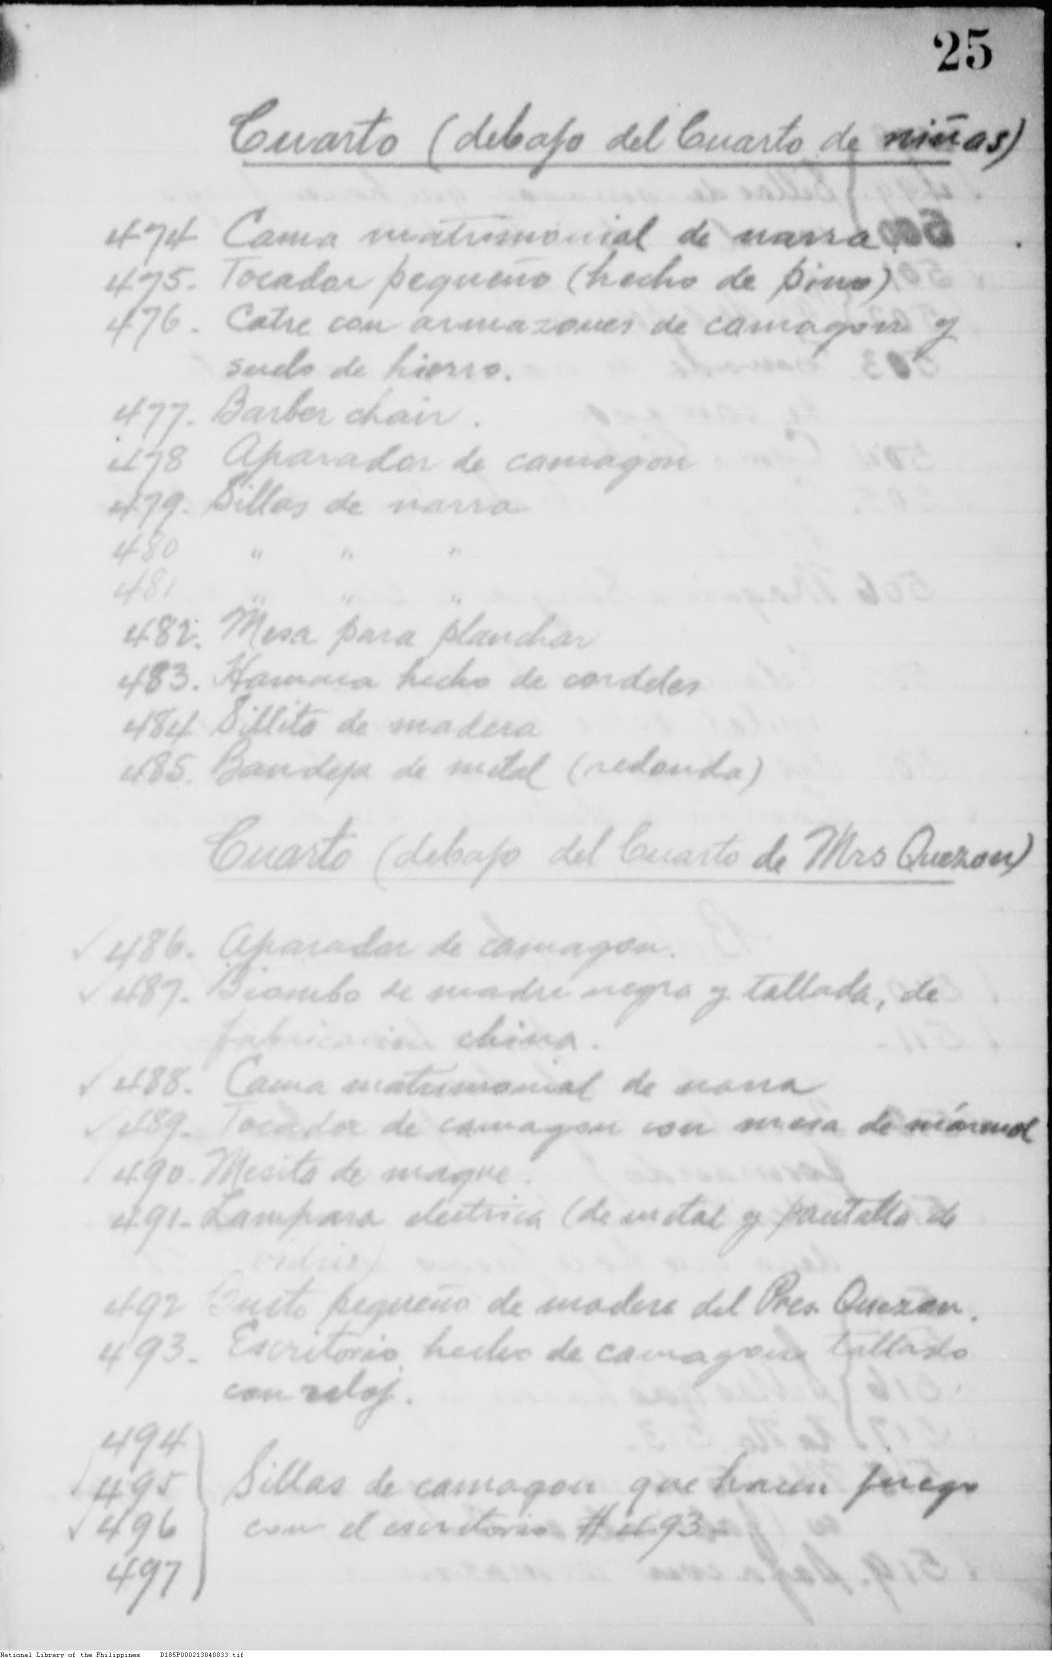 25
Cuarto (debajo del Cuarto de niñas)
474 Cama matrimonial de narra
475. Tocador pequeño (hecho de pino)
476. Catre con armazones de camagon y
suelo de hierro.
477. Barber chair.
478 Aparador de camagon
479. Sillas de narra
480 " " "
481 " " "
482. Mesa para planchar
483. Hamaca hecho de cordeles
484 Sillita de madera
485. Bandeja de metal (redonda)
Cuarto (debajo del Cuarto de Mrs Quezon)
✓ 486. Aparador de camagon.
✓ 487. Biombo de madre negra y tallada, de
fabricacion china.
✓ 488. Cama matrimonial de narra
✓ 489. Tocador de camagon con mesa de mármol
490. Mesita de maque.
491. Lampara electrica (de metal y pantalla de
vidrio)
492 Busto pequeño de madera del Pres. Quezon.
493. Escritorio hecho de camagon tallado
con reloj.
494
✓ 495 Sillas de camagon que hacen juego
✓ 496 con el escritorio #493
497
National Library of the Philippines D185P000213040033.tif